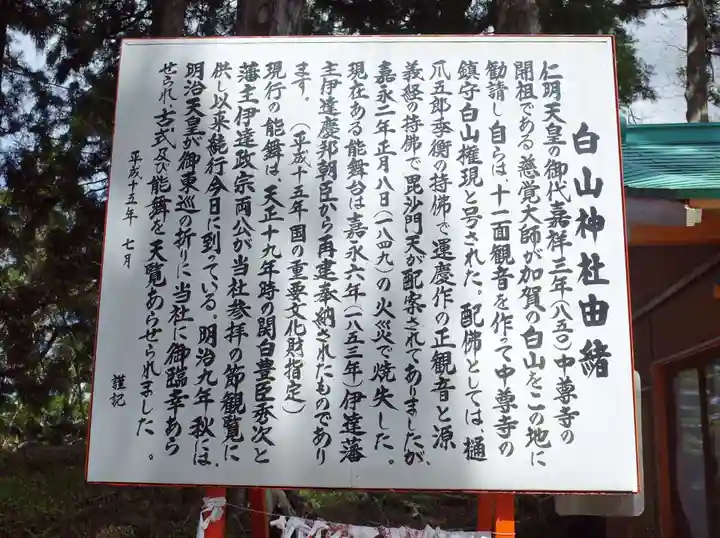 白山神社由緒
仁明天皇の御代嘉祥三年(八五〇)中尊寺の
開祖である慈覚大師が加賀の白山をこの地に
勧請し自らは、十一面観音を作って中尊寺の
鎮守白山権現と号された。配佛としては、樋
爪五郎季衡の持佛で運慶作の正観音と源
義経の持佛で毘沙門天が配案されてありましたが、
嘉永二年正月八日(一八四九)の火災で焼失した。
現在ある能舞台は嘉永六年(一八五三年)伊達藩
主伊達慶邦朝臣から再建奉納されたものであり
ます。(平成十五年国の重要文化財指定)
現行の能舞は、天正十九年時の関白豊臣秀次と
藩主伊達政宗両公が当社参拝の節観覧に
供し以来競行今日に到っている。明治九年秋には、
明治天皇が御東巡の折りに当社に御臨幸あら
せられ、古式及び能舞を天覧あらせられました。
平成十五年 七月
謹記